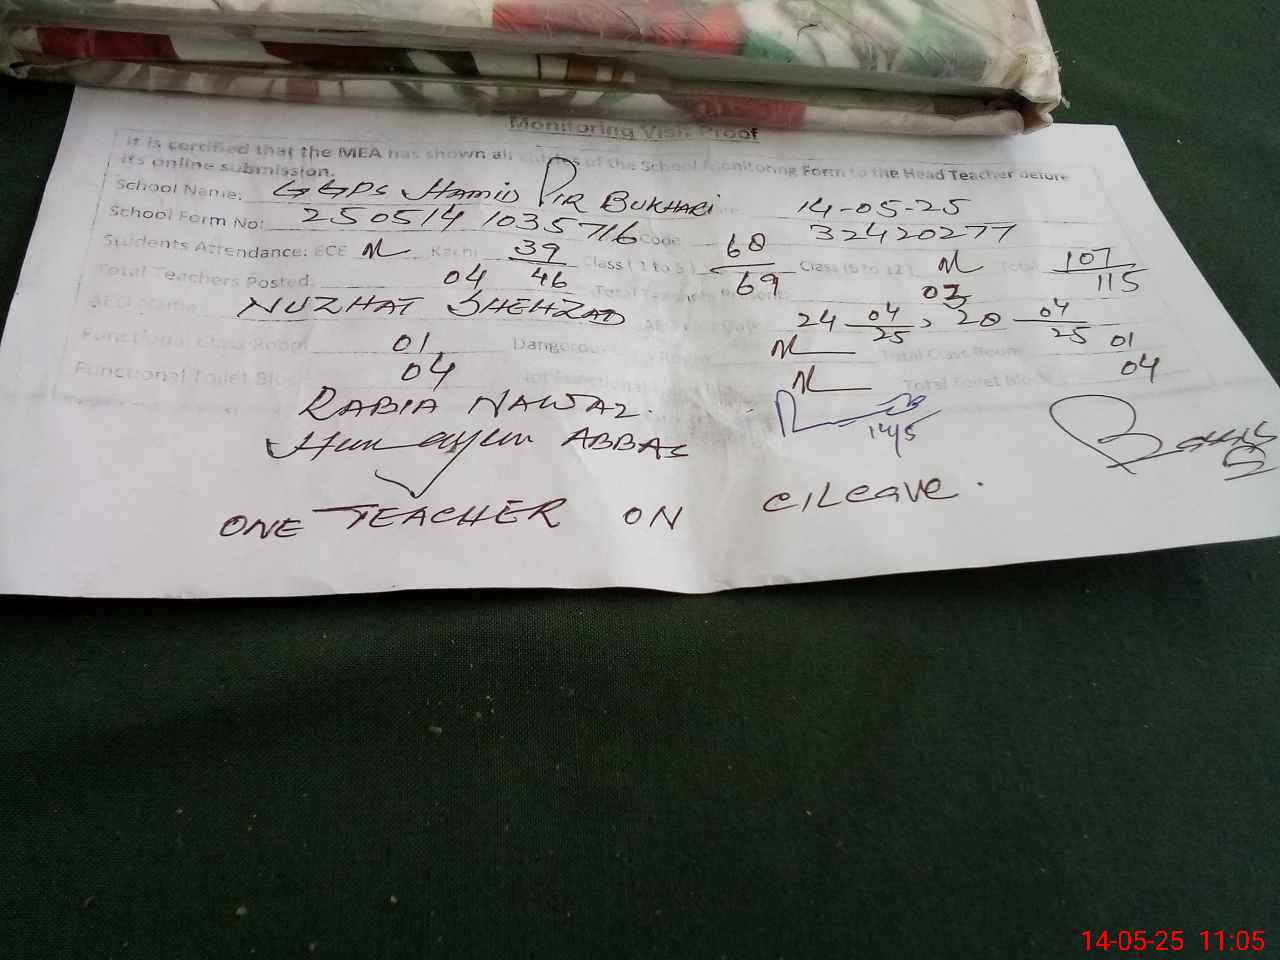 Monitoring Visit Proof
It is certified that the MEA has shown all entries of the School Monitoring Form to the Head Teacher before
its online submission.
School Name: GGPS Hamid Pir BUKHARI 14-05-25
School Form No: 250514 1035716 Code 32420277
Students Attendance: ECE N Kachi 39/46 Class (1 to 5) 68/69 Class (6 to 12) N Total 107/115
Total Teachers Posted: 04 Total Teachers Present: 03
AEO Name NUZHAT SHEHZAD 24 04/25, 28 04/25
Functional Class Room 01 Dangerous Room N Total Class Room 01
Functional Toilet Block 04 Not Functional N Total Toilet Block 04
RABIA NAWAZ. 14/5
Humayun ABBAS
ONE TEACHER ON C/Leave.
14-05-25 11:05